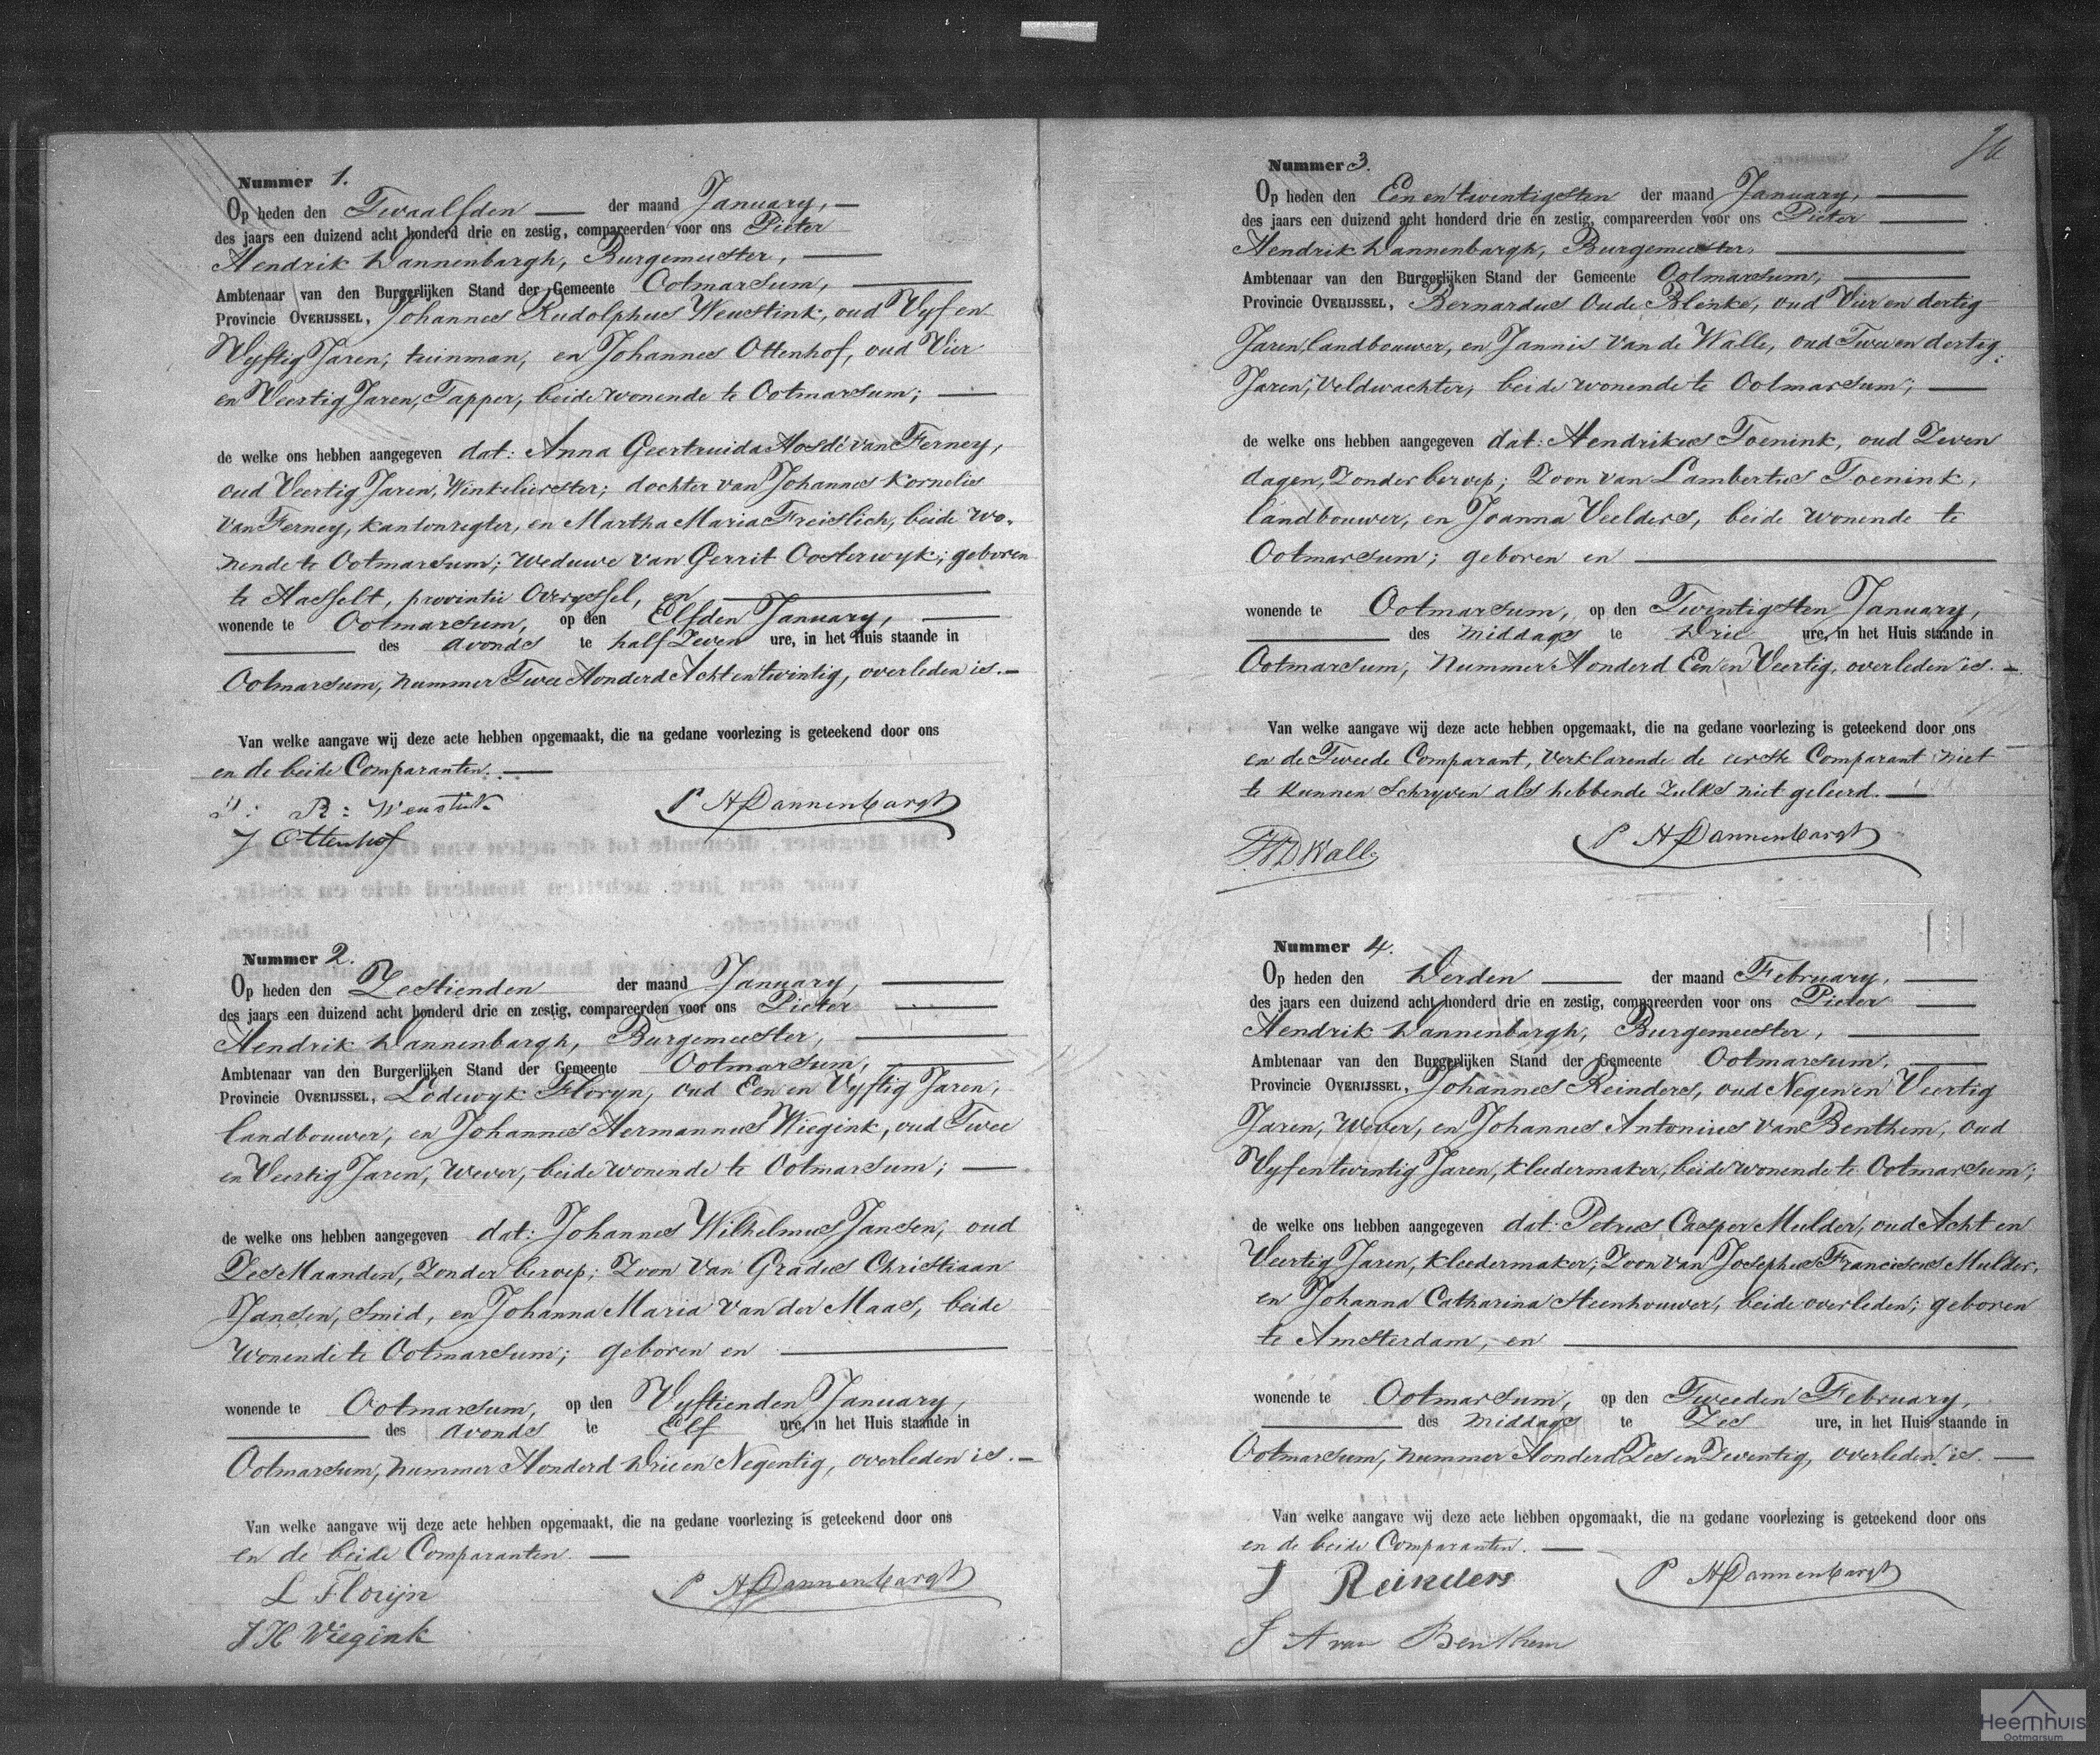 Nummer 1.
Op heden den Twaalfden der maand January,
des jaars een duizend acht honderd drie en zestig, compareerden voor ons Pieter
Hendrik Dannenbargh, Burgemeester,
Ambtenaar van den Burgerlijken Stand der Gemeente Ootmarsum,
Provincie OVERIJSSEL, Johannes Rudolphus Weustink, oud Vyf en
Vyftig Jaren, tuinman, en Johannes Ottenhof, oud Vier
en Veertig Jaren, Tapper, beide wonende te Ootmarsum;
de welke ons hebben aangegeven dat: Anna Geertruida Hosdé van Ferney,
oud Veertig Jaren, Winkelierster; dochter van Johannes Kornelis
van Ferney, kantonregter, en Martha Maria Freislich, beide wo-
nende te Ootmarsum; Weduwe van Gerrit Oosterwyk; geboren
te Hasselt, provintie Overyssel, en
wonende te Ootmarsum, op den Elfden January,
des avonds te half Zeven ure, in het Huis staande in
Ootmarsum, nummer Twee Honderd Acht en twintig, overleden is.
Van welke aangave wij deze acte hebben opgemaakt, die na gedane voorlezing is geteekend door ons
en de beide Comparanten.
J: R: Weustink
P H Dannenbargh
J Ottenhof
Nummer 2.
Op heden den Zestienden der maand January,
des jaars een duizend acht honderd drie en zestig, compareerden voor ons Pieter
Hendrik Dannenbargh, Burgemeester,
Ambtenaar van den Burgerlijken Stand der Gemeente Ootmarsum,
Provincie OVERIJSSEL, Lodewyk Floryn, oud Een en Vyftig Jaren,
landbouwer, en Johannes Hermannus Wiegink, oud Twee
en Veertig Jaren, Wever, beide wonende te Ootmarsum;
de welke ons hebben aangegeven dat: Johannes Wilhelmus Jansen, oud
Zes Maanden, Zonder beroep; Zoon van Gradus Christiaan
Jansen, Smid, en Johanna Maria van der Maas, beide
Wonende te Ootmarsum; geboren en
wonende te Ootmarsum, op den Vyftienden January,
des avonds te Elf ure, in het Huis staande in
Ootmarsum, nummer Honderd Drie en Negentig, overleden is.
Van welke aangave wij deze acte hebben opgemaakt, die na gedane voorlezing is geteekend door ons
en de beide Comparanten.
L Florijn
P H Dannenbargh
J H Wiegink
Nummer 3.
Op heden den Een en twintigsten der maand January,
des jaars een duizend acht honderd drie en zestig, compareerden voor ons Pieter
Hendrik Dannenbargh, Burgemeester,
Ambtenaar van den Burgerlijken Stand der Gemeente Ootmarsum,
Provincie OVERIJSSEL, Bernardus Oude Blenke, oud Vier en dertig
Jaren, landbouwer, en Jannis van de Walle, oud Twee en dertig
Jaren, Veldwachter, beide wonende te Ootmarsum;
de welke ons hebben aangegeven dat: Hendrikus Toenink, oud Zeven
dagen, Zonder beroep; Zoon van Lambertus Toenink,
landbouwer, en Joanna Veelders, beide wonende te
Ootmarsum; geboren en
wonende te Ootmarsum, op den Twintigsten January,
des middags te Drie ure, in het Huis staande in
Ootmarsum, nummer Honderd Een en Veertig, overleden is.
Van welke aangave wij deze acte hebben opgemaakt, die na gedane voorlezing is geteekend door ons
en de Tweede Comparant, verklarende de eerste Comparant niet
te kunnen Schryven als hebbende zulks niet geleerd.
P H Dannenbargh
Nummer 4.
Op heden den Derden der maand February,
des jaars een duizend acht honderd drie en zestig, compareerden voor ons Pieter
Hendrik Dannenbargh, Burgemeester,
Ambtenaar van den Burgerlijken Stand der Gemeente Ootmarsum,
Provincie OVERIJSSEL, Johannes Reinders, oud Negen en Veertig
Jaren, Wever, en Johannes Antonius van Benthem, oud
Vyf en twintig Jaren, kleedermaker, beide wonende te Ootmarsum;
de welke ons hebben aangegeven dat: Petrus Casper Mulder, oud Acht en
Veertig Jaren, kleedermaker; Zoon van Josephus Franciscus Mulder,
en Johanna Catharina Steenhouwer, beide overleden; geboren
te Amsterdam, en
wonende te Ootmarsum, op den Tweeden February,
des middags te Zes ure, in het Huis staande in
Ootmarsum, nummer Honderd Zes en Zeventig, overleden is.
Van welke aangave wij deze acte hebben opgemaakt, die na gedane voorlezing is geteekend door ons
en de beide Comparanten.
J Reinders
P H Dannenbargh
J A van Benthem
Heemhuis
Ootmarsum